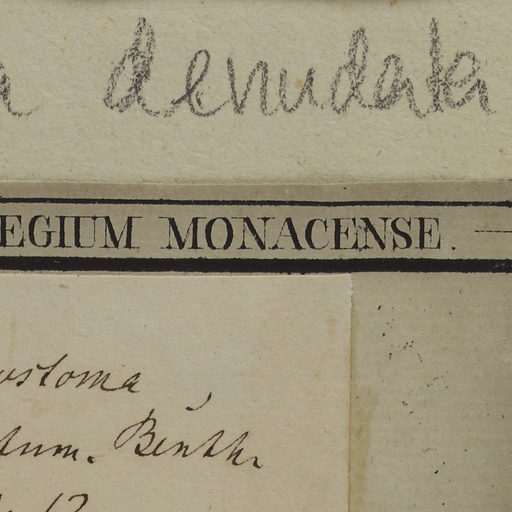 a denudata
EGIUM MONACENSE.
ustoma
tum. Benth